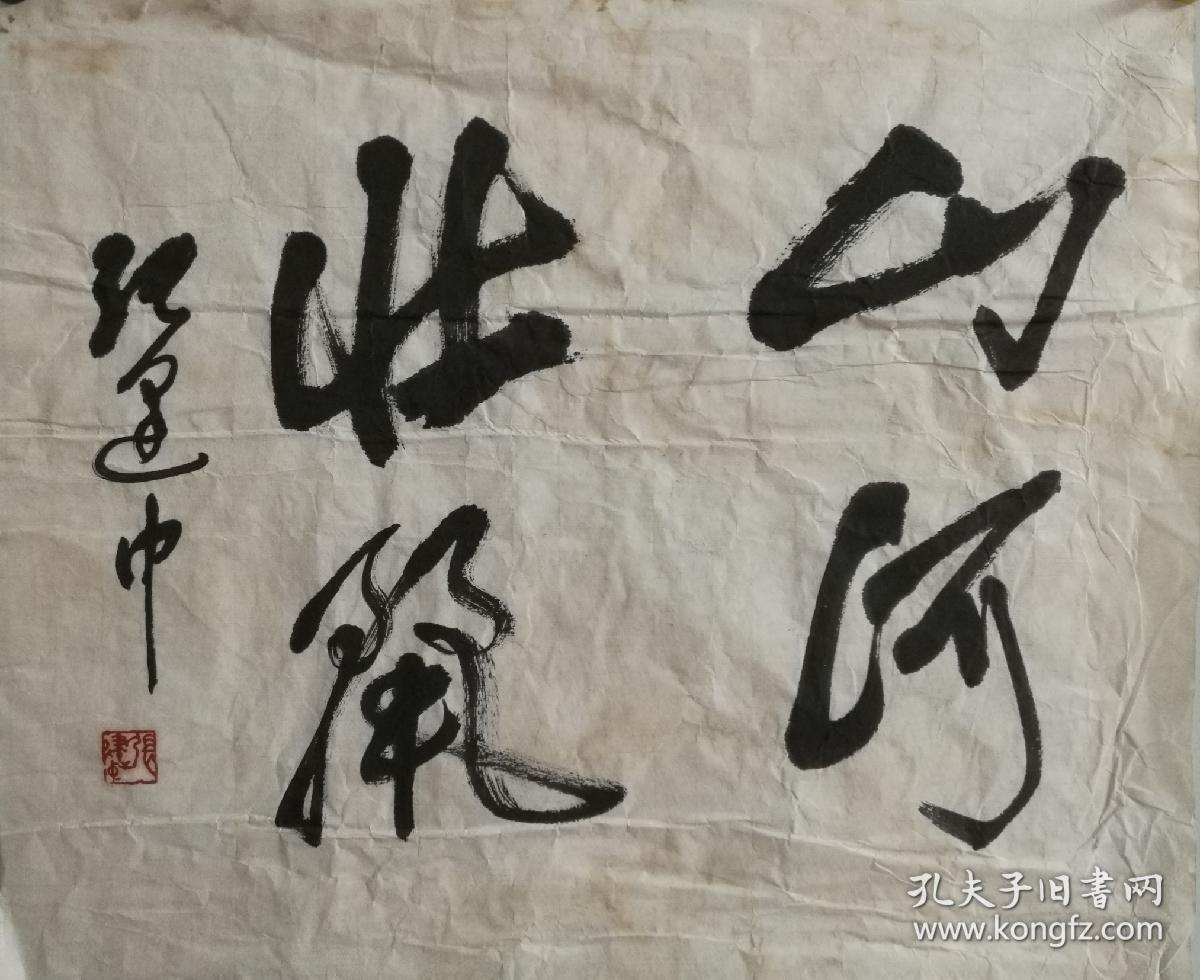 山河
壮丽
张建中
張建中
孔夫子旧書网
www.kongfz.com